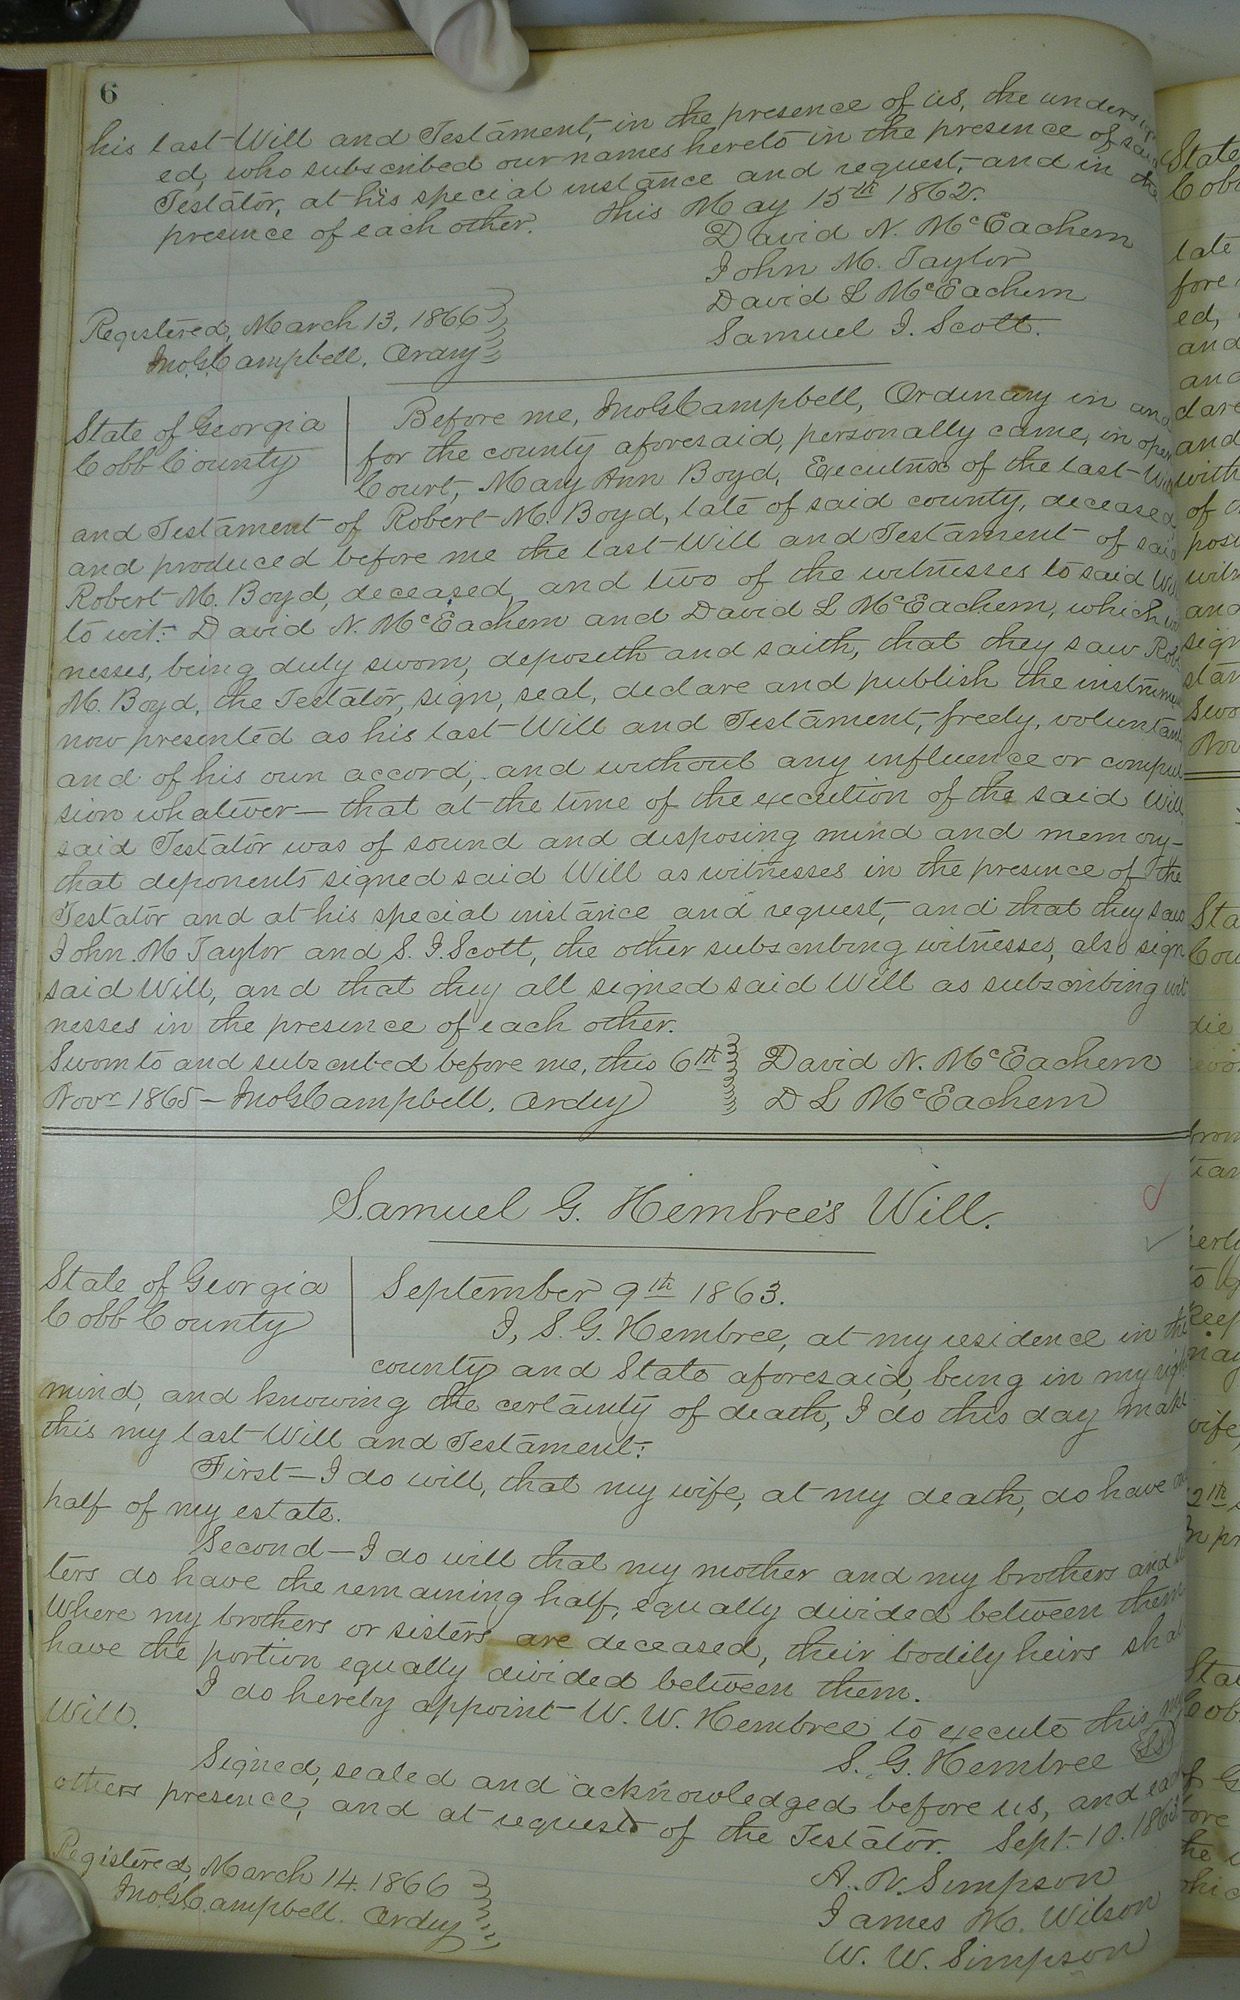 6
his last Will and Testament, in the presence of us, the undersign
ed, who subscribed our names hereto in the presence of said
Testator, at his special instance and request, and in the
presence of each other. This May 15th 1862.
David N. McEachern
John M. Taylor
David L McEachern
Samuel J. Scott.
Registered, March 13, 1866
Jno. G. Campbell, Ordny
State of Georgia
Cobb County
Before me, Jno G Campbell, Ordinary in and
for the county aforesaid, personally came, in open
Court, Mary Ann Boyd, Executrix of the last Will
and Testament of Robert M. Boyd, late of said county, deceased
and produced before me the last Will and Testament of said
Robert M. Boyd, deceased, and two of the witnesses to said Will
to wit: David N. McEachern and David L McEachern, which wit
nesses, being duly sworn, deposeth and saith, that they saw Robt
M. Boyd, the Testator, sign, seal, declare and publish the instrument
now presented as his last Will and Testament, freely, voluntarily
and of his own accord, and without any influence or compul
sion whatever — that at the time of the execution of the said Will,
said Testator was of sound and disposing mind and memory —
that deponents signed said Will as witnesses in the presence of the
Testator and at his special instance and request, and that they saw
John M Taylor and S. J. Scott, the other subscribing witnesses, also sign
said Will, and that they all signed said Will as subscribing wit
nesses in the presence of each other.
Sworn to and subscribed before me, this 6th
Novr 1865 — Jno G Campbell, Ordny
David N. McEachern
D L McEachern
Samuel G. Hembree's Will.
State of Georgia
Cobb County
September 9th 1863.
I, S. G. Hembree, at my residence in the
county and State aforesaid, being in my right
mind, and knowing the certainty of death, I do this day make
this my last Will and Testament:
First — I do will, that my wife, at my death, do have one
half of my estate.
Second — I do will that my mother and my brothers and sis
ters do have the remaining half, equally divided between them
Where my brothers or sisters are deceased, their bodily heirs shall
have the portion equally divided between them.
I do hereby appoint W. W. Hembree to execute this my
Will.
S. G. Hembree LS
Signed, sealed and acknowledged before us, and each
others presence, and at request of the Testator. Sept. 10. 1863
A. N. Simpson
James M. Wilson
W. W. Simpson
Registered, March 14. 1866
Jno G Campbell. Ordny